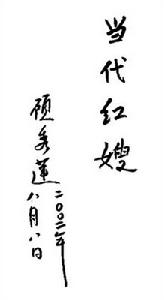 当代红嫂
顾秀莲
二〇〇二年
八月八日